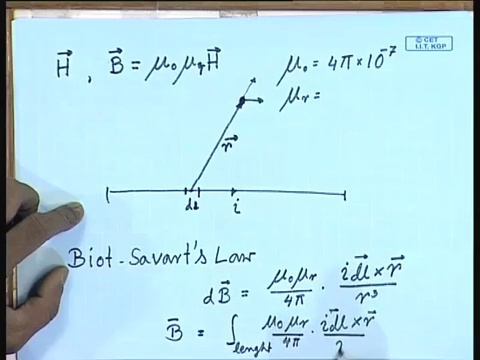 © CET
I.I.T. KGP
H⃗ , B⃗ = μ₀ μᵣ H⃗
μ₀ = 4π × 10⁻⁷
μᵣ =
r⃗
dl i
Biot-Savart's Law
dB⃗ = μ₀μᵣ/4π · i dl⃗ × r⃗ / r³
B̄ = ∫lenght μ₀μᵣ/4π · i dl⃗ × r⃗ /